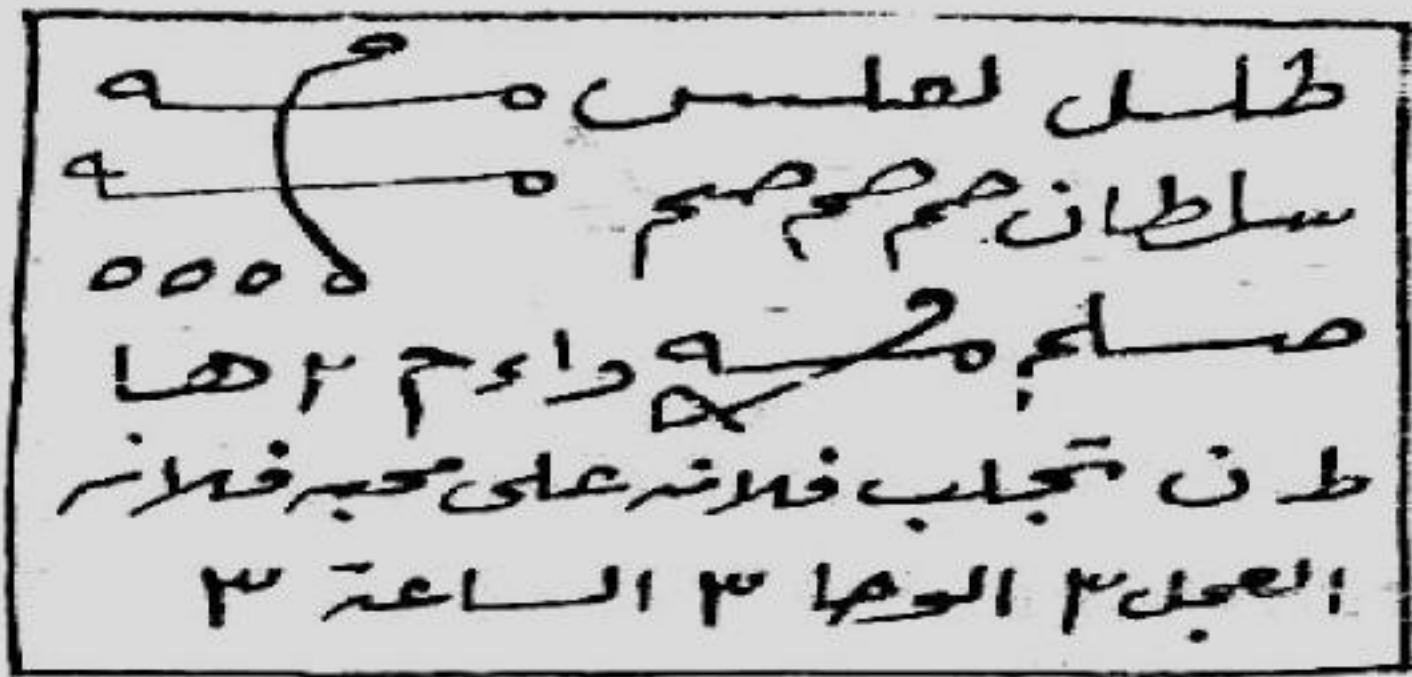 طلسل لعلس
سلطان صم صم صم
صلم واءح ٢ ها
ط ن تجلب فلانه على محبه فلانه
العجل ٣ الوحا ٣ الساعة ٣